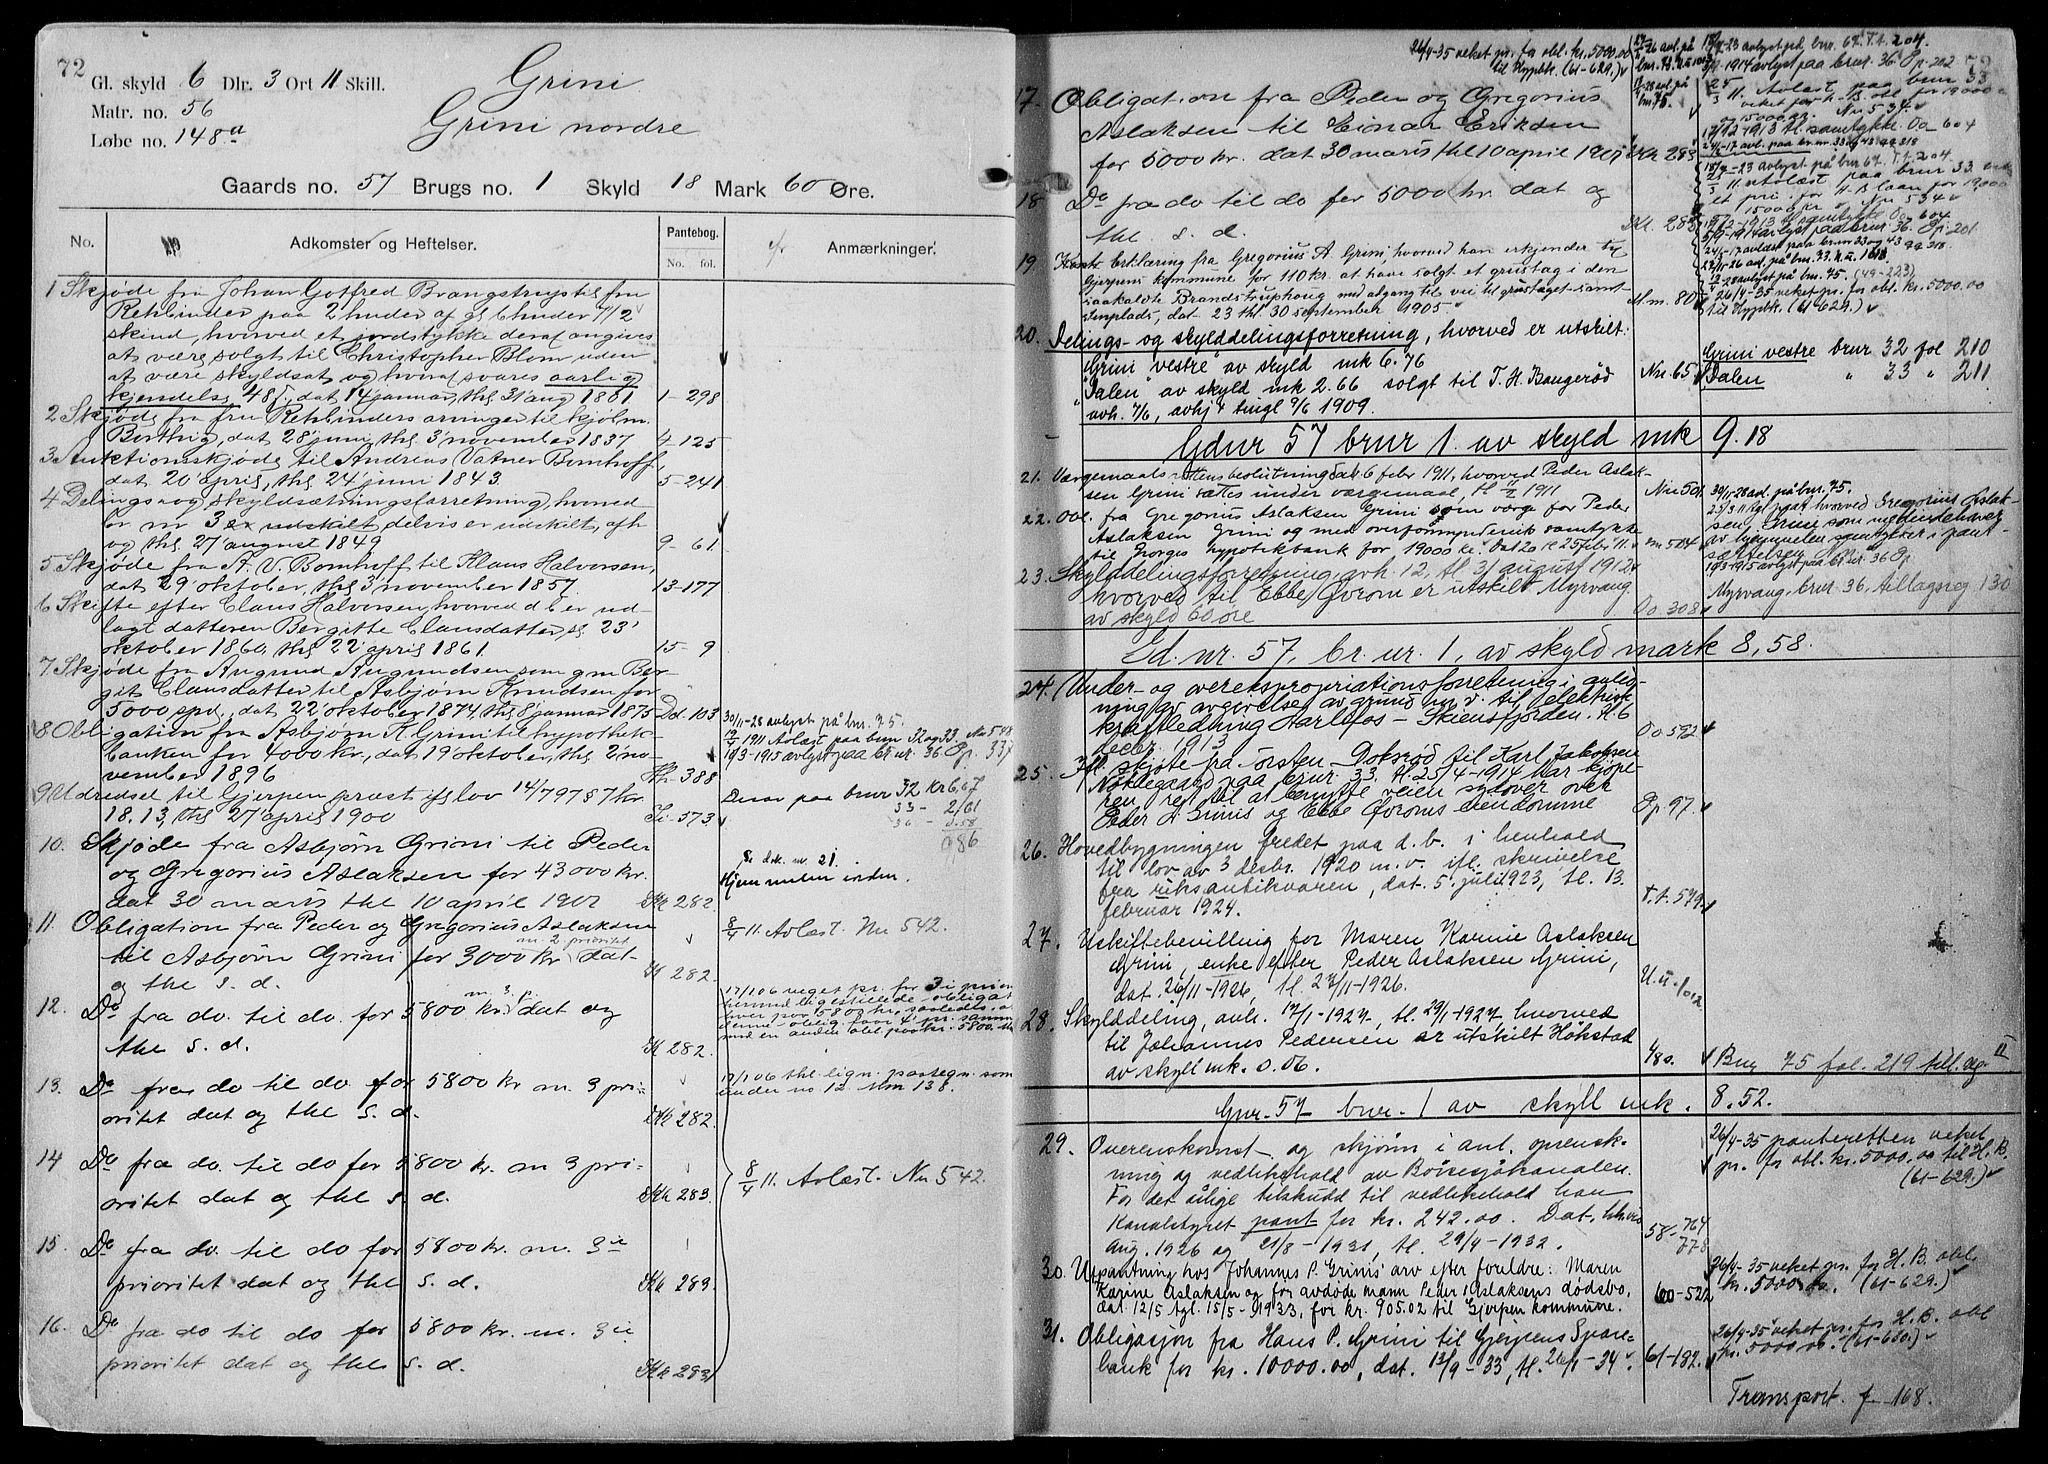 72
Gl. skyld 6 Dlr. 3 Ort 11 Skill.
Matr. no. 56
Løbe no. 148a
Grini
Grini nordre
Gaards no. 57 Brugs no. 1 Skyld 18 Mark 60 Øre.
No. Adkomster og Heftelser. Pantebog. No. fol. Anmærkninger.
1 Skjøde fra Johan Gotfred Brangstrup til fru
Rehbinder paa 2 huder af gl 6 huder 7 1/2
skind, hvorved et jordstykke deraf angives
at være solgt til Christopher Blom uden
at være skyldsat og hvoraf svares aarlig
kjendelse 48 s, dat 14 januar, thl 31 aug 1801 1-298
2 Skjøde fra fru Rehbinders arvinger til kjøbm.
Borthig, dat 28 juni, thl 3 november 1837 4-125
3 Auktionsskjøde til Andreas Vatner Bomhoff,
dat 20 april, thl 24 juni 1843. 5-241
4 Delings og skyldsætningsforretning, hvorved
br nr 3 er udskilt, delvis er udskilt, afh
og thl 27 august 1849 9-61
5 Skjøde fra A. V. Bomhoff til Klaus Halvorsen,
dat 29 oktober, thl 3 november 1857. 13-177
6 Skifte efter Claus Halvorsen, hvorved d b er ud-
lagt datteren Bergitte Clausdatter, sl. 23
oktober 1860, thl 22 april 1861. 15-9
7 Skjøde fra Augund Augundsen som gm Ber-
git Clausdatter til Asbjørn Knudsen for
5000 spd, dat 22 oktober 1874, thl 8 januar 1875 Dd. 103
8 Obligation fra Asbjørn K Grini til hypothek-
banken for 4000 kr, dat 19 oktober, thl 2 no-
vember 1896 Hh-388
30/11-28 avlyst på bnr. 75.
1911 Avlæst paa brnr 32 og 33. Nu 548
19/3-1915 avlyst paa br nr. 36 Op. 337
9 Udredsel til Gjerpen præst ifl lov 14/7 97 87 kr
18.13, thl 27 april 1900 Ii-573.
Derav paa brnr 32 Kr 6,67
33 - 2,61
36 - 0.58
9,86
10. Skjøde fra Asbjørn Grini til Peder
og Gregorius Aslaksen for 43000 kr.
dat 30 marts thl 10 april 1901 Kk 282.
Se dok. nr. 21.
Hjemmelen inden.
11. Obligation fra Peder og Gregorius Aslaksen
til Asbjørn Grini for 3000 kr m. 2 prioritet dat
og thl s. d. Kk 282.
8/4 11. Avlæst. Nu 542.
12. Do fra do. til do. for 5800 kr. m. 3 p. dat og
thl s. d. Kk 282.
17/1 06 veget pr. for 3 i prior
13. Do fra do til do for 5800 kr m. 3 pri-
oritet dat og thl s. d. Kk 282.
17/1 06 thl lign. paategn. som
under no 12. Mm 138.
14 Do fra do. til do for 5800 kr. m 3 pri-
oritet dat og thl s d. Kk 283.
8/4 11. Avlæst. Nu 542.
15. Do fra do. til do for 5800 kr. m. 3ie
prioritet dat og thl s. d. Kk 283.
16. Do fra do til do for 5800 kr. m. 3ie
prioritet dat og thl s. d. Kk 283
26/4-35 veket pr. for obl. kr. 5000.00
til Hypbk. (61-629.)
17. Obligation fra Peder og Gregorius
Aslaksen til Einar Eriksen
for 5000 kr. dat 30 marts thl 10 april 1901 Kk 283
18 Do fra do til do for 5000 kr. dat og
thl. s. d. Kk. 283
19 Erklæring fra Gregorius A. Grini, hvorved han erkjender til
Gjerpens kommune for 110 kr. at have solgt et grustag i den
saakaldte Brandstruphaug med adgang til vei til grustaget samt
, dat 23 thl. 30 september 1905 Mm. 80
26/4-35 veket pr. for obl. kr. 5000.00
til Hypbk. (61-629.)
20. Delings- og skylddelingsforretning, hvorved er utskilt:
"Grini vestre" av skyld mk 6.76
"Dalen" av skyld mk 2.66 solgt til T. H. Baugerød
avh. 7/6, avhj. tingl 9/6 1909. Nn. 65
Grini vestre brnr 32 fol 210
Dalen " 33 " 211
Gdnr 57 brnr 1. av skyld mk 9.18
21. Vergemaalsrettens beslutning dat. 6 febr 1911, hvorved Peder Aslak-
sen Grini sættes under vergemaal, tl 17/2 1911 Nu 501
22. Obl. fra Gregorius Aslaksen Grini som verge for Peder
Aslaksen Grini og med overformynderiets samtykke
til Norges hypotekbank for 19000 kr. dat 20 tl 25 febr 11. 504
30/11-28 avl. på bnr. 75.
19/3-1915 avlyst paa br nr. 36 Op.
23. Skylddelingsforretning, avh. 12, tl. 31 august 1912
hvorved til Ebbe Qvrom er utskilt Myrvang
av skyld 60 øre Oo 308
Myrvang, brnr. 36, tillagsreg 130
Gd. nr. 57, br. nr. 1, av skyld mark 8,58.
24. Under- og overekspropriationsforretning i anled-
ning av avgivelse av grund m. v. til elektrisk
kraftledning Aarlifos - Skiensfjorden. tl. 6
decbr. 1913 Oo 592
25. Ifl. skjøte fra Torsten Doksrød til Karl Jakobsen
Nøklegaard paa brnr. 33. tl. 25/4-1914 har kjøpe-
ren ret til at benytte veien sydover over
Peder A. Grinis og Ebbe Qvroms eiendomme Op 97.
26. Hovedbygningen fredet paa d. b. i henhold
til lov av 3 desbr. 1920 m. v. ifl. skrivelse
fra riksantikvaren, dat. 5. juli 1923, tl. 13.
februar 1924. T.t. 579.
27. Uskiftebevilling for Maren Karine Aslaksen
Grini, enke efter Peder Aslaksen Grini,
dat. 26/11-1926, tl. 27/11-1926. U.u. 1012
28. Skylddeling, avh. 17/1-1927, tl. 29/1-1927 hvorved
til Johannes Pedersen er utskilt Høkstad
av skyll mk. 0.06. 480.
Bnr 75 fol. 219 till. reg. II
Gnr. 57 bnr. 1 av skyll mk. 8.52.
29. Overenskomst og skjønn i ant. oprensk-
ning og vedlikehold av Børsesjøkanalen.
For det årlige tilskudd til vedlikehold har
Kanalstyret pant for kr. 242.00. Dat.
Aug. 1926 og 21/8-1931, tl. 29/4-1932. 58-764 778
26/4-35 panteretten veket
pr. for obl. kr. 5000.00 til H. B.
(61-629.)
30. Utpantning hos Johannes P. Grinis arv efter foreldre: Maren
Karine Aslaksen og for avdøde mann Peder Aslaksens dødsbo,
dat. 12/5 tgl. 15/5-1933, for kr. 905.02 til Gjerpen kommune. 60-522
26/4-35 veket pr. for H. B. obl.
kr. 5000.00. (61-629.)
31. Obligasjon fra Hans P. Grini til Gjerpens Spare-
bank for kr. 10000.00, dat. 13/9-33, tl. 26/1-34. 61-182.
26/4-35 veket pr. for H. B. obl
kr. 5000.00. (61-620.)
Transport. f 168.